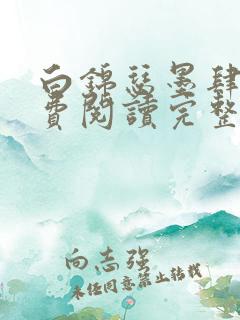 白錦瑟墨肆
費閱讀完整
向志强
未任同意禁止转载